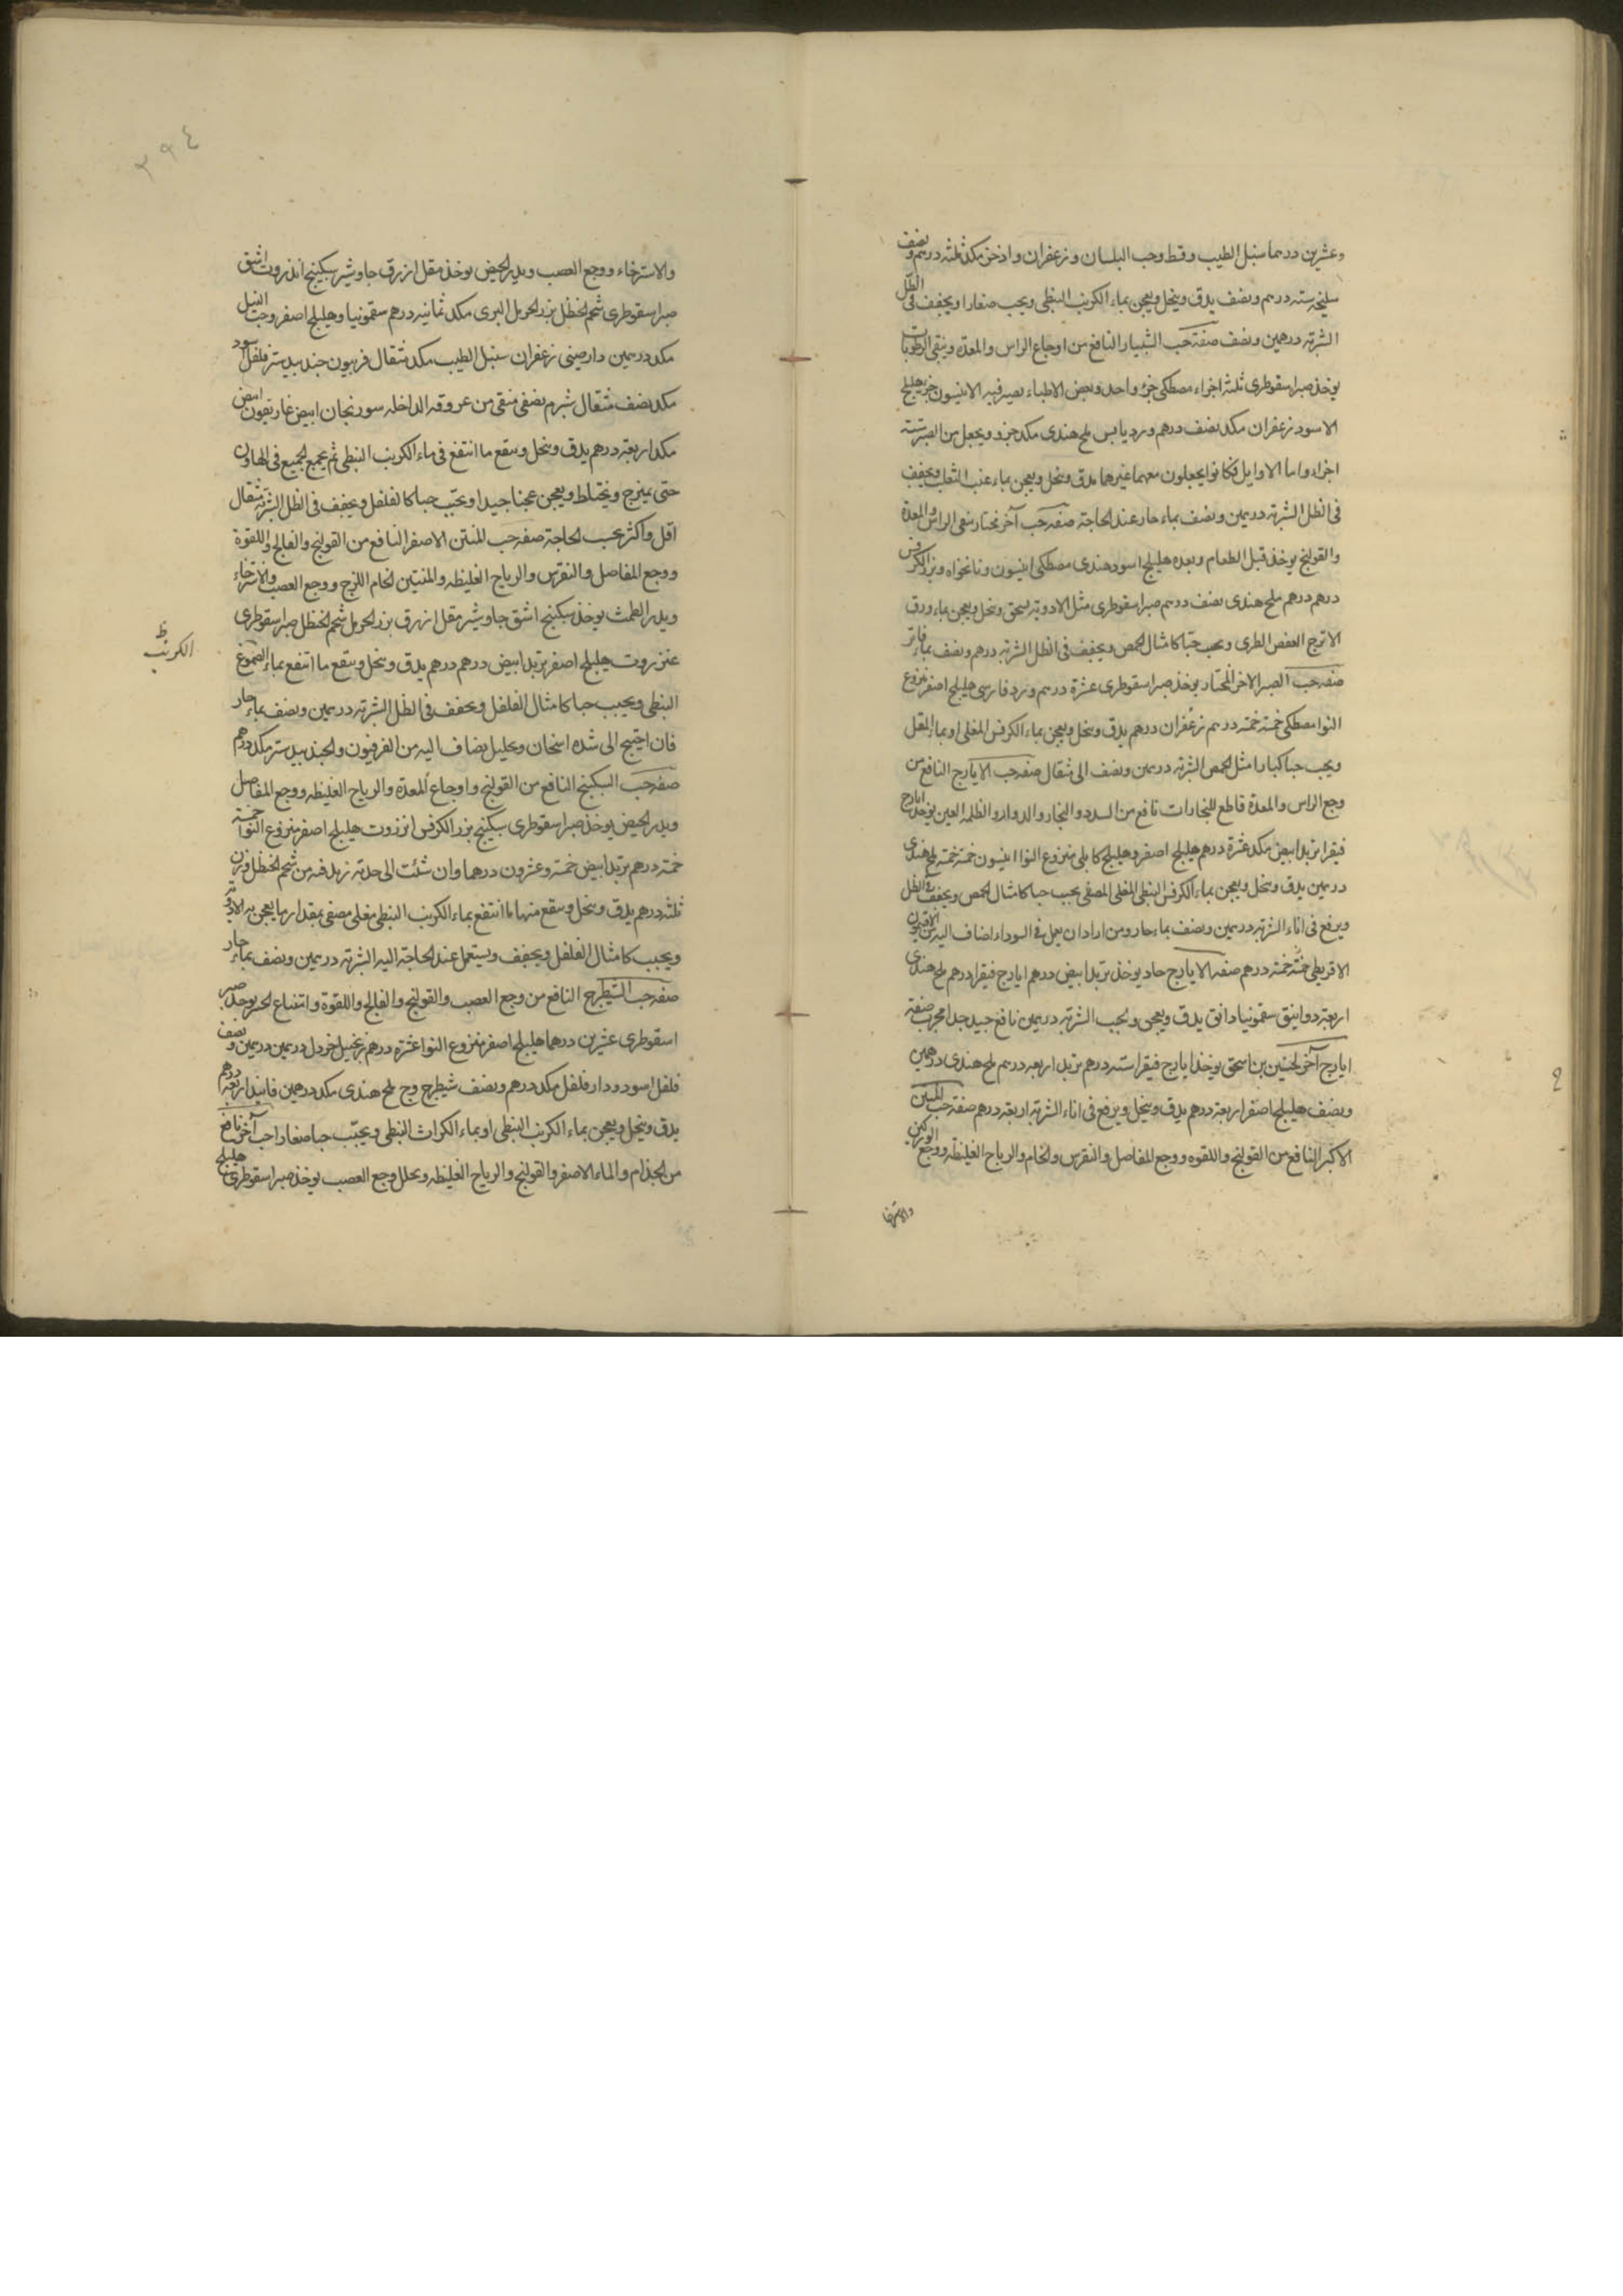 وعشرين درهما سنبل الطيب وقسط وحب البلسان وزعفران واذخر مكد ثلثة درهم ونصف
سليخه ستة درهم ونصف يدق وينخل ويعجن بماء الكرنب النبطى ويحبب صغارا ويجفف فى الظل
الشربة درهمين ونصف صفة حب الشبيار النافع من اوجاع الراس والمعدة وينقى الرطوبات
يوخذ صبر اسقوطرى ثلثة اجزاء مصطكى جزء واحد وبعض الاطباء يصير فيه الانيسون جزء هليلج
الاسود زعفران مكد نصف درهم ورد يابس ملح هندى مكد جزو ويجعل من الصبر ستة
اجزاء واما الاوايل فكانوا يجعلون معهما غيرهما يدق وينخل ويعجن بماء عنب الثعلب ويجفف
فى الظل الشربة درهمين ونصف بماء حار عند الحاجة صفة حب آخر نختار ينقى الراس والمعدة
والقولنج يوخذ قبل الطعام وبعده هليلج اسود هندى مصطكى انيسون ونانخواه وبزر الكرفس
درهم درهم ملح هندى نصف درهم صبر اسقوطرى مثل الادوية يسحق وينخل ويعجن بماء ورق
الاترج الغض الطرى ويحبب حبا كامثال الحمص ويجفف فى الظل الشربة درهم ونصف بماء فاتر
صفة حب الصبر الاخر المختار يوخذ صبر اسقوطرى عشرة درهم ورد فارسى هليلج اصفر منزوع
النوا مصطكى خمسة خمسة درهم زعفران درهم يدق وينخل ويعجن بماء الكرفس المغلى او بماء المقل
ويحبب حبا كبارا مثل الحمص الشربة درهمين ونصف الى مثقال صفة حب الايارج النافع من
وجع الراس والمعدة قاطع للبخارات نافع من السدد والبخار والدوار والظلمة العين يوخذ ايارج
فيقرا تربد ابيض مكد عشرة درهم هليلج اصفر وهليلج كابلى منزوع النوا انيسون خمسة خمسة ملح هندى
درهمين يدق وينخل ويعجن بماء الكرفس النبطى المغلى المصفى يحبب حبا كامثال الحمص ويجفف فى الظل
ويرفع فى اناء الشربة درهمين ونصف بماء حار ومن اراد ان يعمل فى السوداء اضاف اليه من الافتيمون
الاقريطى خمسة خمسة درهم صفة الايارج حاد يوخذ تربد ابيض درهم ايارج فيقرا درهم ملح هندى
اربعة دوانيق سقمونيا دانق يدق ويعجن ويحبب الشربة درهمين نافع جيد جدا مجرب صفة
ايارج آخر لحنين بن اسحق يوخذ ايارج فيقرا ستة درهم تربد اربعة درهم ملح هندى درهمين
ونصف هليلج اصفر اربعة درهم يدق وينخل ويرفع فى اناء الشربة اربعة درهم صفة حب المنتن
الاكبر النافع من القولنج واللقوه ووجع المفاصل والنقرس والخام والرياح الغليظه ووجع الوركين
والاسترخا
٣٩٤
والاسترخاء ووجع العصب ويدر الحيض يوخذ مقل ازرق جاوشير سكبينج انذروت اشق
صبر اسقوطرى شحم الحنظل بزر الحرمل البرى مكد ثمانيه درهم سقمونيا وهليلج اصفر وحب النيل
مكد درهمين دارصينى زعفران سنبل الطيب مكد مثقال فربيون جندبيدستر فلفل اسود
مكد نصف مثقال شبرم نصفى منقى من عروقه الداخله سورنجان ابيض غاريقون ابيض
مكد اربعة درهم يدق وينخل وينقع ما انتقع فى ماء الكرنب النبطى ثم يجمع الجميع فى الهاون
حتى يمتزج ويختلط ويعجن عجنا جيدا ويحبب حبا كالفلفل ويجفف فى الظل الشربة مثقال
اقل واكثر بحسب الحاجة صفة حب المنتن الاصفر النافع من القولنج والفالج واللقوة
ووجع المفاصل والنقرس والرياح الغليظه والمنتين الخام اللزج ووجع العصب والاسترخاء
ويدر الطمث يوخذ سكبينج اشق جاوشير مقل ازرق بزر الحرمل شحم الحنظل صبر اسقوطرى
عنزروت هليلج اصفر تربد ابيض درهم درهم يدق وينخل وينقع ما انتقع بماء الصموغ
الكرنب ظ
النبطى ويحبب حبا كامثال الفلفل ويجفف فى الظل الشربة درهمين ونصف بماء حار
فان احتيج الى شده اسخان وتحليل يضاف اليه من الفرفيون والجندبيدستر مكد درهم
صفة حب السكبينج النافع من القولنج واوجاع المعدة والرياح الغليظه ووجع المفاصل
ويدر الحيض يوخذ صبر اسقوطرى سكبينج بزر الكرفس انزروت هليلج اصفر منزوع النوا خمسة
خمسة درهم تربد ابيض خمسة وعشرون درهما وان شئت الى حدته زيد فيه من شحم الحنظل وزن
ثلثة درهم يدق وينخل وينقع منها ما انتقع بماء الكرنب النبطى مغلى مصفى بمقدار ما يعجن به الادوية
ويحبب كامثال الفلفل ويجفف ويستعمل عند الحاجة اليه الشربة درهمين ونصف بماء حار
صفة حب الشيطرج النافع من وجع العصب والقولنج والفالج واللقوة يوخذ صبر
اسقوطرى عشرين درهما هليلج اصفر منزوع النوا عشرة درهم زنجبيل خردل درهمين درهمين ونصف
فلفل اسود ودار فلفل مكد درهم ونصف شيطرج وج ملح هندى مكد درهمين فانيذ اربعة درهم
يدق وينخل ويعجن بماء الكرنب النبطى او بماء الكراث النبطى ويحبب حبا صغارا حب آخر نافع
من الجذام والماء الاصفر والقولنج والرياح الغليظه ويحلل وجع العصب يوخذ صبر اسقوطرى هليلج